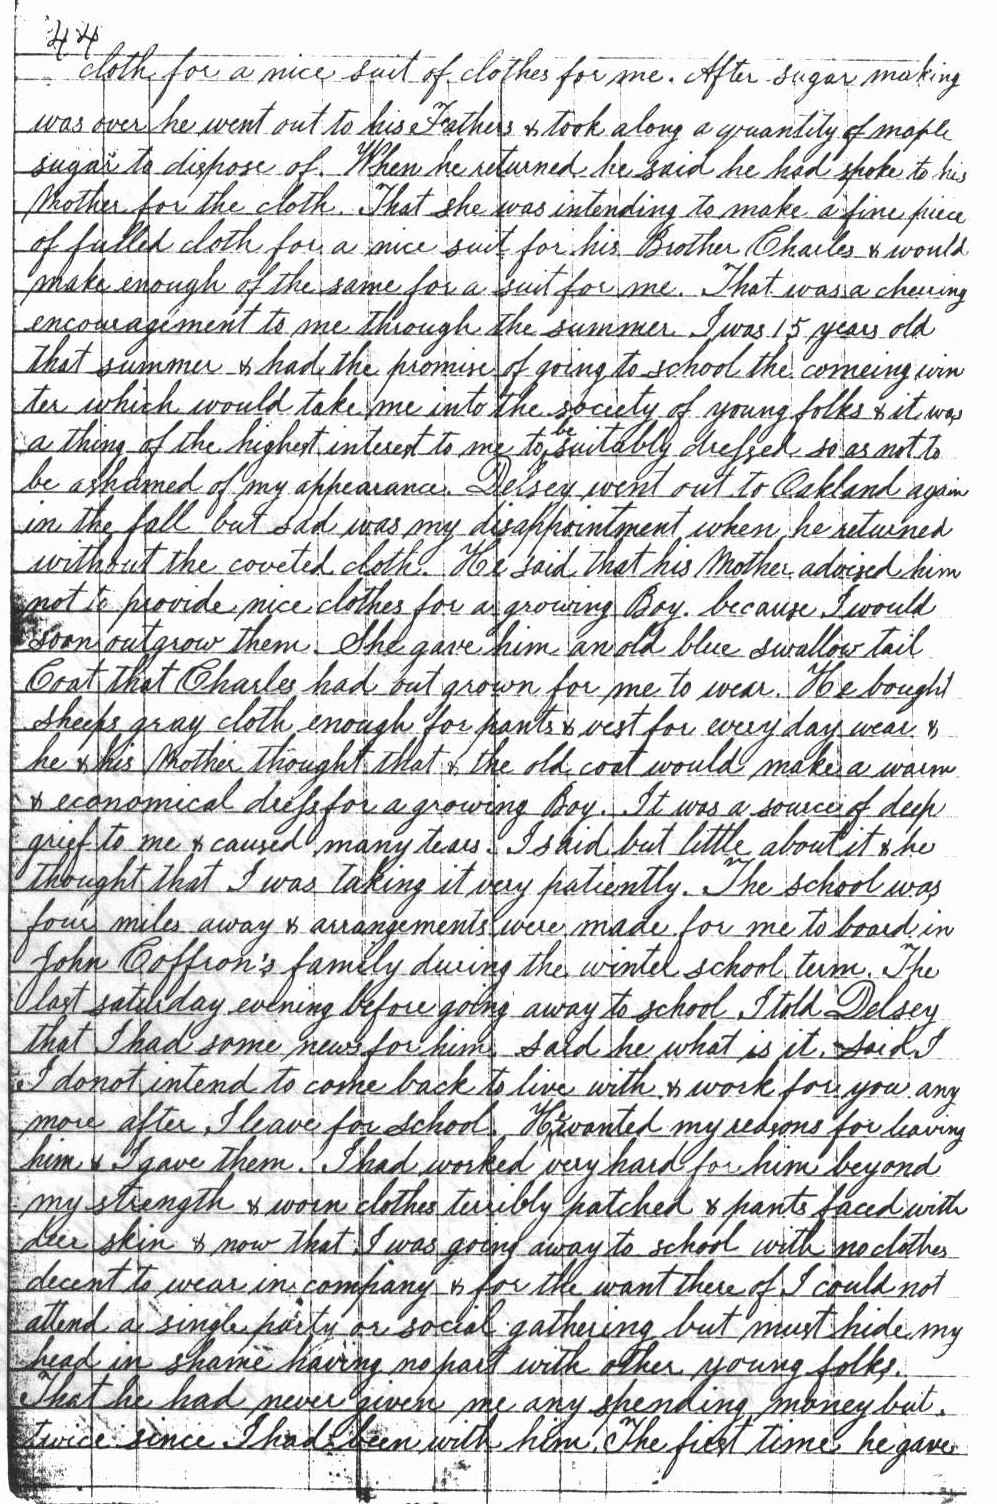 44
cloth for a nice suit of clothes for me. After sugar making
was over he went out to his Fathers & took along a quantity of maple
sugar to dispose of. When he returned he said he had spoke to his
Mother for the cloth. That she was intending to make a fine piece
of fulled cloth for a nice suit for his Brother Charles & would
make enough of the same for a suit for me. That was a cheering
encouragement to me through the summer. I was 15 years old
that summer & had the promise of going to school the comeing win
ter which would take me into the society of young folks & it was
a thing of the highest interest to me to be suitably dressed so as not to
be ashamed of my appearance. Delsey went out to Oakland again
in the fall but sad was my disappointment when he returned
without the coveted cloth. He said that his Mother advised him
not to provide nice clothes for a growing Boy. because I would
soon outgrow them. She gave him an old blue swallow tail
Coat that Charles had out grown for me to wear. He bought
sheeps gray cloth enough for pants & vest for every day wear &
he & his Mother thought that & the old coat would make a warm
& economical dress for a growing Boy. It was a source of deep
grief to me & caused many tears. I said but little about it & he
thought that I was taking it very patiently. The school was
four miles away & arrangements were made for me to board in
John Coffron's family during the winter school term. The
last saturday evening before going away to school I told Delsey
that I had some news for him. said he what is it. said I
I do not intend to come back to live with & work for you any
more after I leave for school. He wanted my reasons for leaving
him & I gave them. I had worked very hard for him beyond
my strength & worn clothes terribly patched & pants faced with
deer skin & now that I was going away to school with no clothes
decent to wear in company & for the want there of I could not
attend a single party or social gathering but must hide my
head in shame having no part with other young folks.
That he had never given me any spending money but
twice since I had been with him. The first time he gave